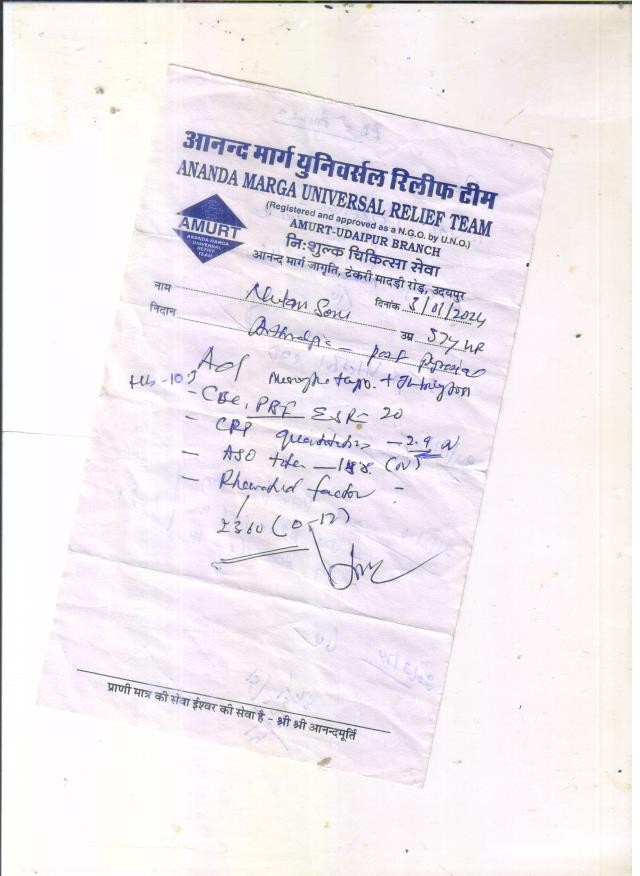 आनन्द मार्ग युनिवर्सल रिलीफ टीम
ANANDA MARGA UNIVERSAL RELIEF TEAM
(Registered and approved as a N.G.O. by U.N.O.)
AMURT-UDAIPUR BRANCH
AMURT
ANANDA MARGA
UNIVERSAL
RELIEF
TEAM
निःशुल्क चिकित्सा सेवा
आनन्द मार्ग जागृति, टेकरी मादड़ी रोड़, उदयपुर
नाम Nutan Soni दिनांक 3/01/2024
निदान Arthralgia - post उम्र 37y
Adv
Hb - 10
- CBC, PBF ESR - 20
- CRP quantitative - 2.9 N
- ASO titer - (N)
- Rheumatoid factor -
(0-12)
प्राणी मात्र की सेवा ईश्वर की सेवा है - श्री श्री आनन्दमूर्ति